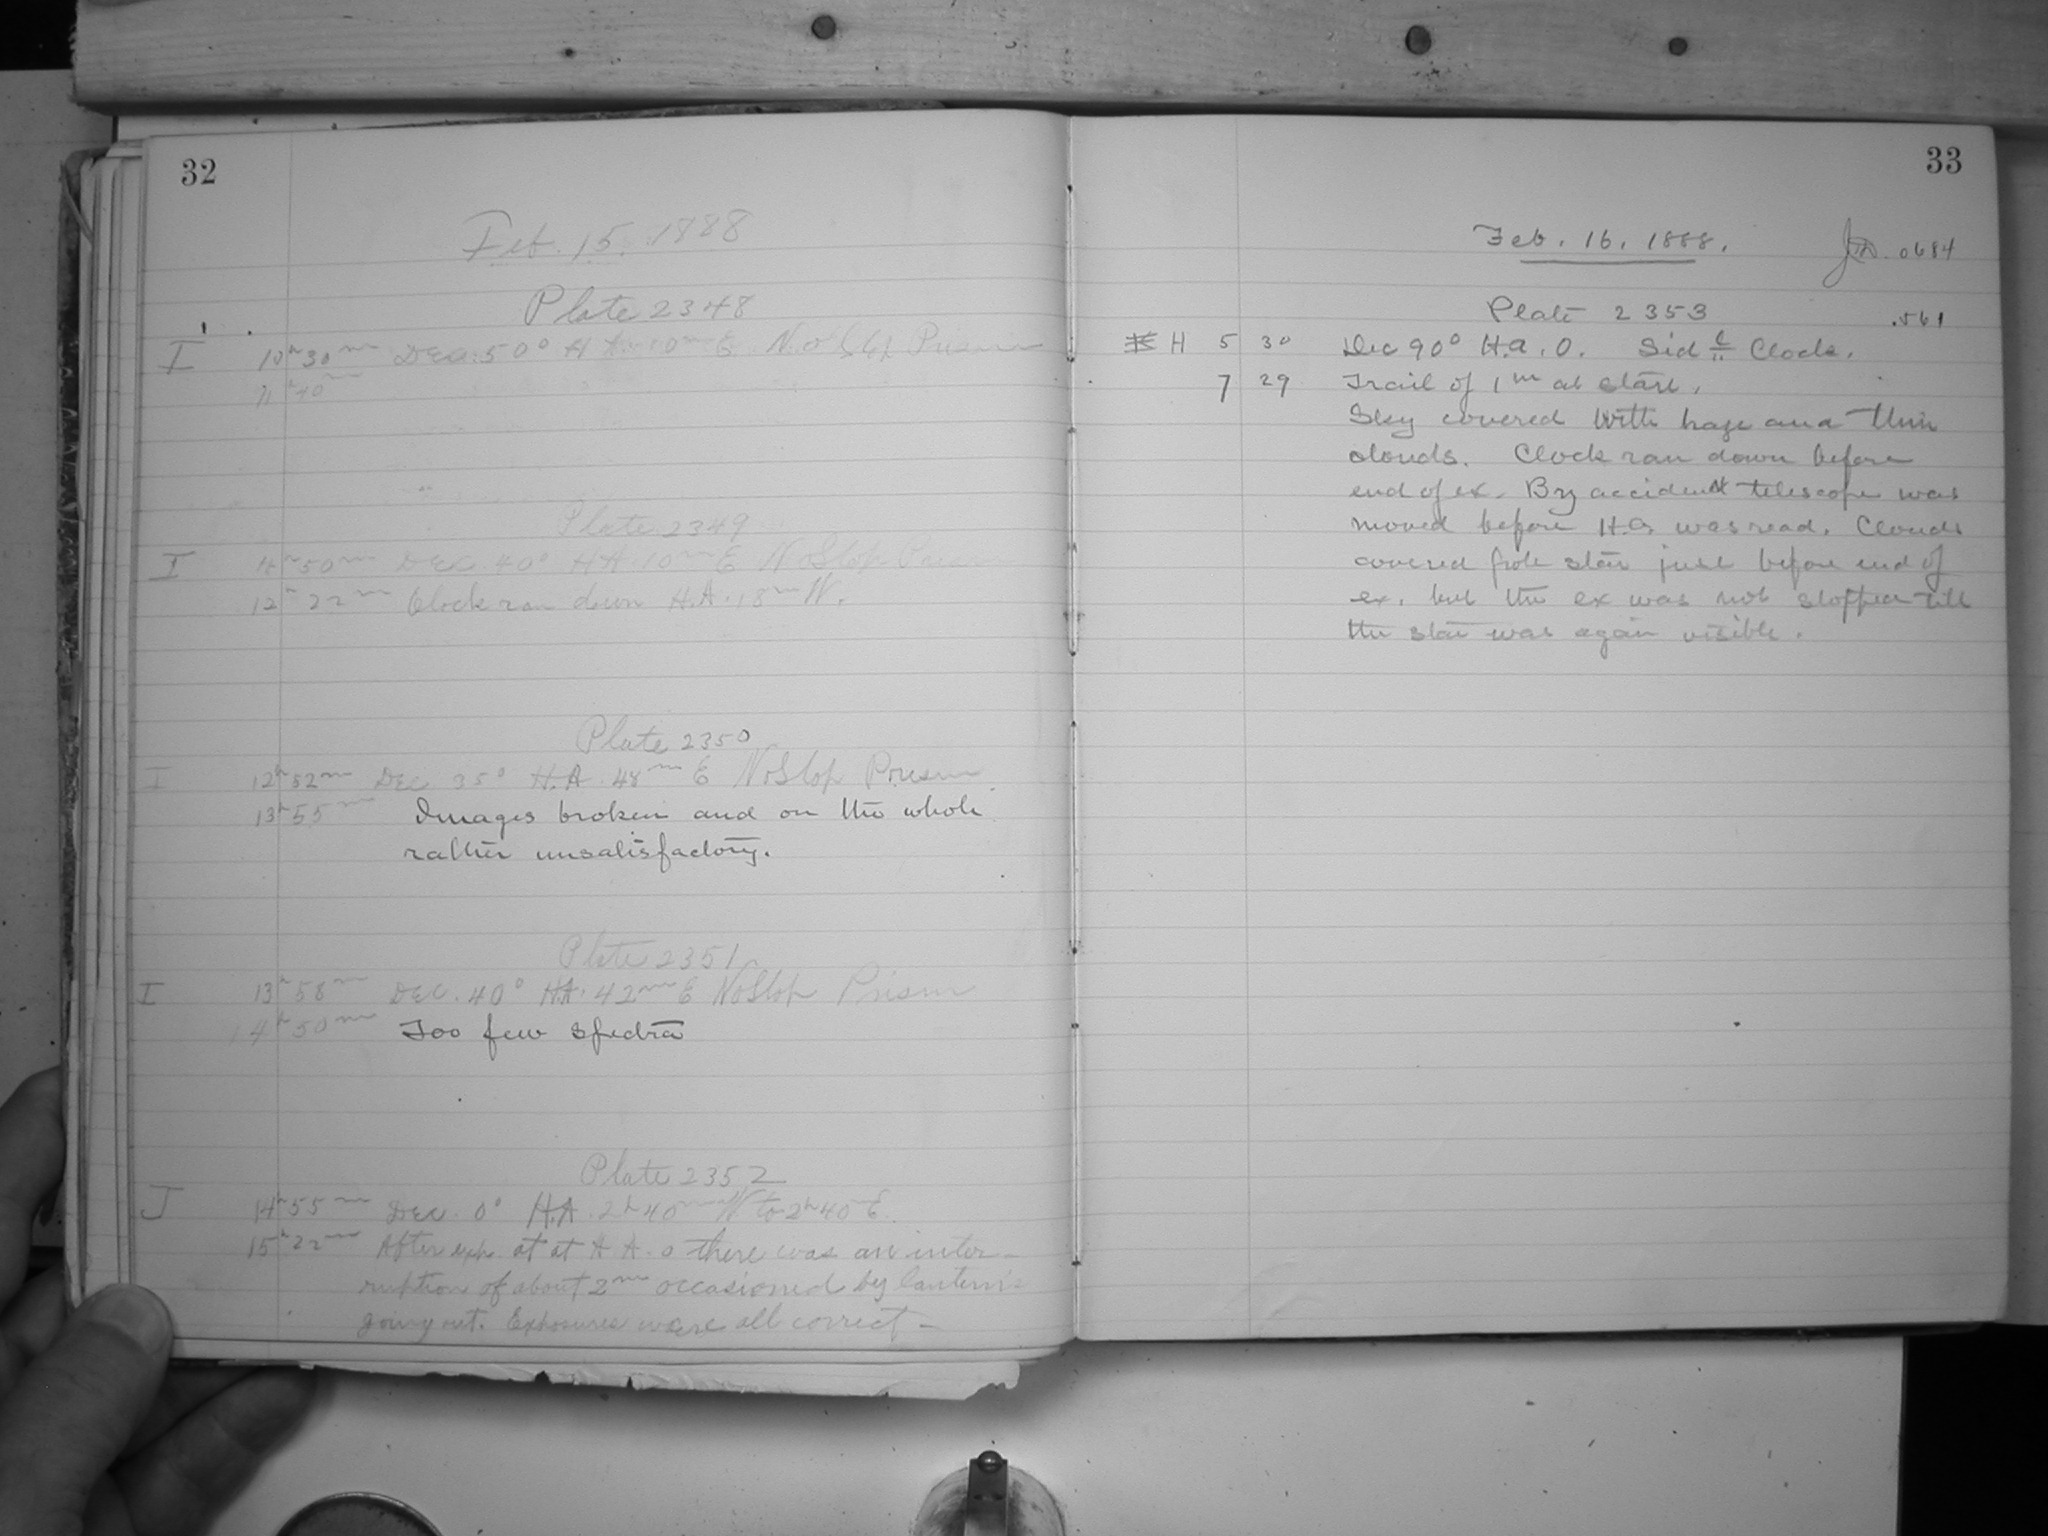 32
Feb. 15. 1888
Plate 2348
I 10h 30m Dec. 50° H A. 10m E. No Prism
11h 40m
Plate 2349
I 11h 50m Dec 40° HA. 10m E No Stop Prism
12h 22m Clock ran down H.A. 18m W.
Plate 2350
I 12h 52m Dec 35° H.A. 48m E No Stop Prism
13h 55m Images broken and on the whole
rather unsatisfactory.
Plate 2351
I 13h 58m Dec. 40° HA. 42m E No Stop Prism
14h 50m Too few spectra
Plate 2352
J 14h 55m Dec. 0° H.A. 2h 40m W to 2h 40 E.
15h 22m After exp. at at A A. 0 there was an inter-
ruption of about 2m occasioned by lantern's
going out. Exposures were all correct -
33
Feb. 16. 1888. 0684
Plate 2353 .561
H 5 30 Dec 90° H.a. 0. Sid Clock.
7 29 Trail of 1m at start.
Sky covered with haze and thin
clouds. Clock ran down before
end of ex. By accident telescope was
moved before H.a. was read. Clouds
covered pole star just before end of
ex. but the ex was not stopped till
the star was again visible.